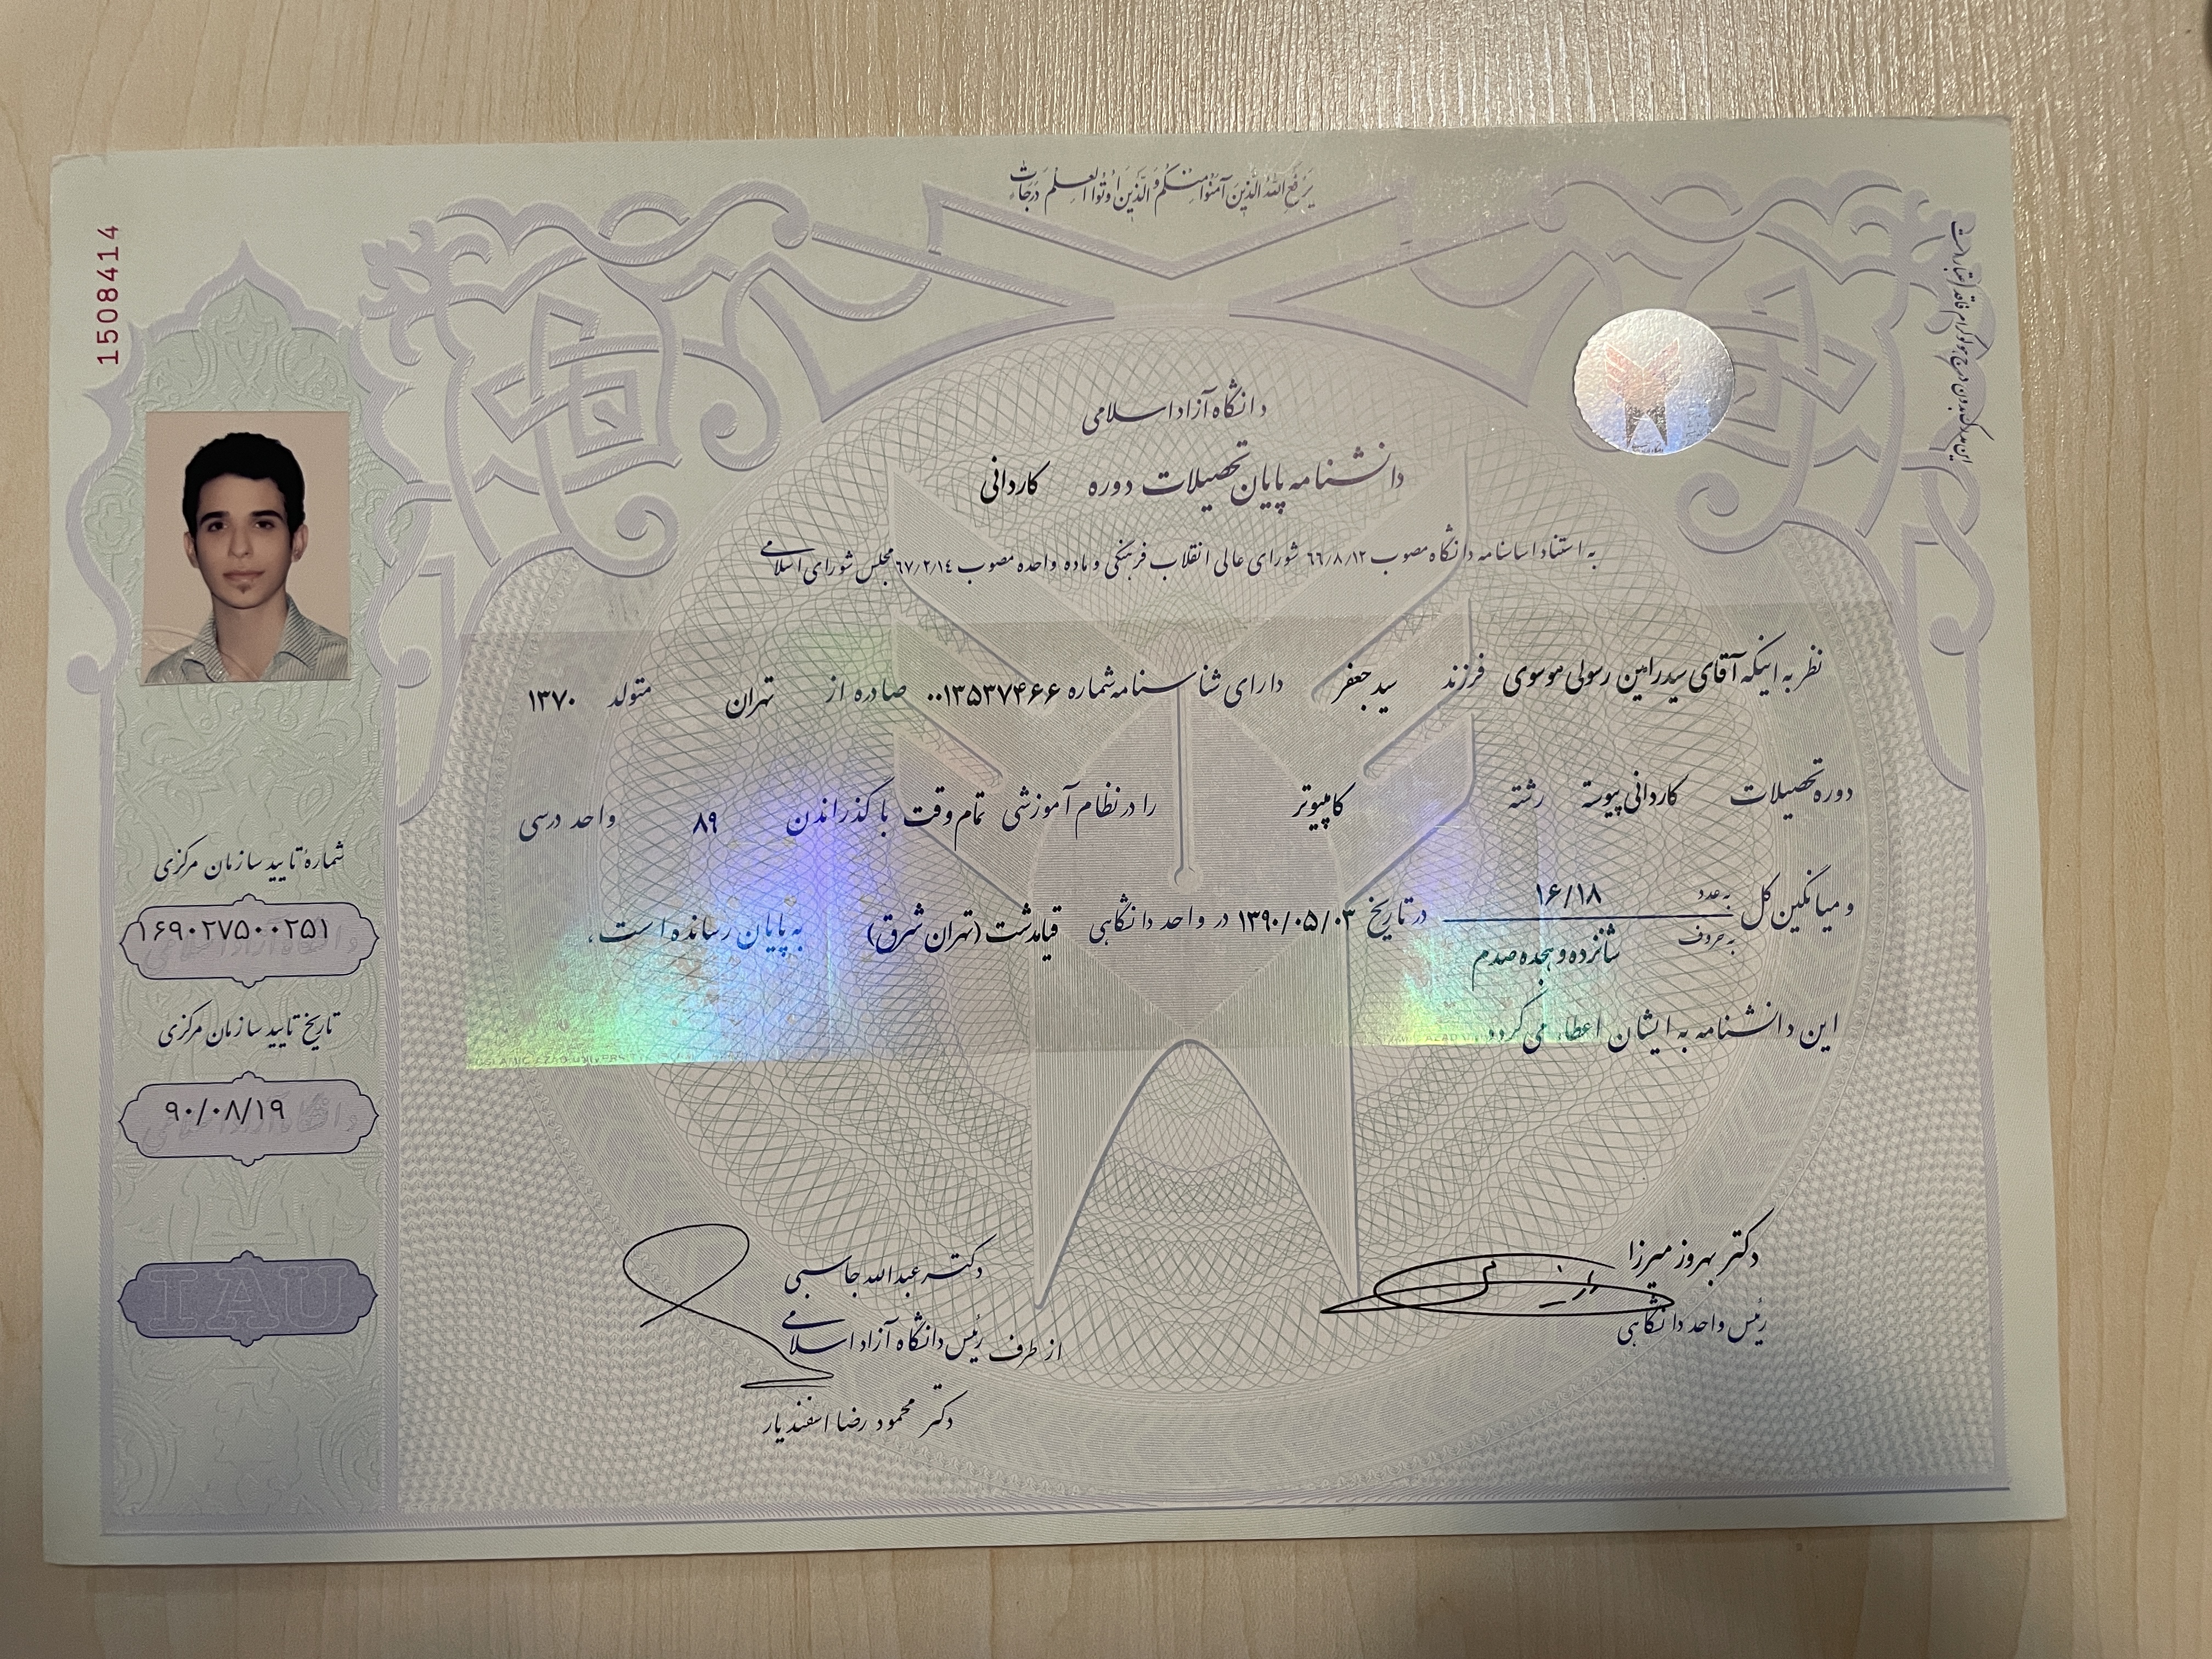 یَرْفَعِ اللهُ الَّذینَ آمَنُوا مِنْکُمْ وَ الَّذینَ اُوتُوا الْعِلْمَ دَرَجَات
دانشگاه آزاد اسلامی
دانشنامه پایان تحصیلات دوره کاردانی
به استناد اساسنامه دانشگاه مصوب ۶۶/۸/۱۲ شورای عالی انقلاب فرهنگی و ماده واحده مصوب ۶۷/۲/۱٤ مجلس شورای اسلامی
نظر به اینکه آقای سیدرامین رسولی موسوی فرزند سیدجعفر دارای شناسنامه شماره ۰۰۱۳۵۳۷۴۶۶ صادره از تهران متولد ۱۳۷۰
دوره تحصیلات کاردانی پیوسته رشته کامپیوتر را در نظام آموزشی تمام وقت با گذراندن ۸۹ واحد درسی
و میانگین کل به عدد ۱۶/۱۸ به حروف شانزده و هجده صدم در تاریخ ۱۳۹۰/۰۵/۰۳ در واحد دانشگاهی قیامدشت (تهران شرق) به پایان رسانده است،
این دانشنامه به ایشان اعطاء می گردد.
دکتر بهروز میرزا
رئیس واحد دانشگاهی
دکتر عبدالله جاسبی
از طرف رئیس دانشگاه آزاد اسلامی
دکتر محمود رضا اسفندیار
1508414
شمارهٔ تایید سازمان مرکزی
۱۶۹۰۲۷۵۰۰۲۵۱
تاریخ تایید سازمان مرکزی
۹۰/۰۸/۱۹
IAU